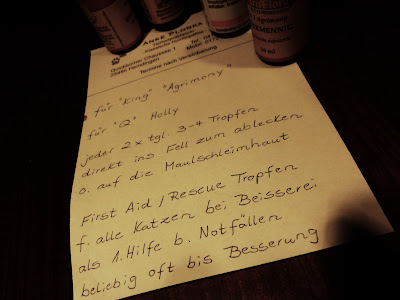 ANKE PLONKA
Quarnbecker Chaussee 1
Termine nach Vereinbarung
AGRIMONY
10 ml
für "King" "Agrimony"
für "Q" Holly
jeder 2 x tgl. 3-4 Tropfen
direkt ins Fell zum ablecken
o. auf die Maulschleimhaut
First Aid / Rescue Tropfen
f. alle Katzen bei Beisserei
als 1. Hilfe b. Notfällen
beliebig oft bis Besserung